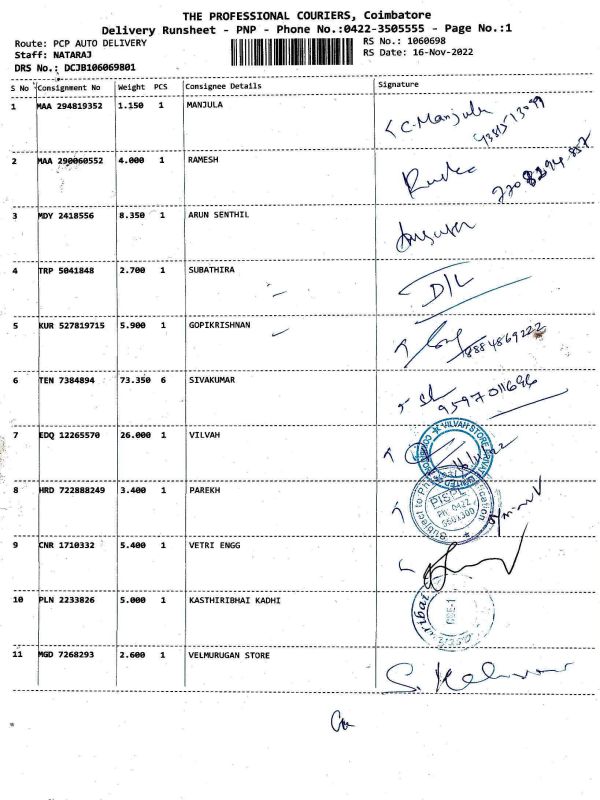 THE PROFESSIONAL COURIERS, Coimbatore
Delivery Runsheet - PNP - Phone No.:0422-3505555 - Page No.:1
Route: PCP AUTO DELIVERY
RS No.: 1060698
Staff: NATARAJ
RS Date: 16-Nov-2022
DRS No.: DCJB106069801
S No Consignment No Weight PCS Consignee Details Signature
1 MAA 294819352 1.150 1 MANJULA C-Manjula
2 MAA 290060552 4.000 1 RAMESH
3 MDY 2418556 8.350 1 ARUN SENTHIL
4 TRP 5041848 2.700 1 SUBATHIRA D/L
5 KUR 527819715 5.900 1 GOPIKRISHNAN 8884869222
6 TEN 7384894 73.350 6 SIVAKUMAR 9597011696
7 EDQ 12265570 26.000 1 VILVAH VILVAH STORE PRIVATE LIMITED
8 HRD 722888249 3.400 1 PAREKH Subject to
9 CNR 1710332 5.400 1 VETRI ENGG
10 PLN 2233826 5.000 1 KASTHIRIBHAI KADHI
11 MGD 7268293 2.600 1 VELMURUGAN STORE